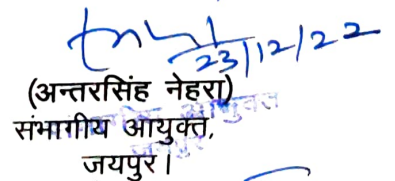 23/12/22
(अन्तरसिंह नेहरा)
संभागीय आयुक्त,
जयपुर।